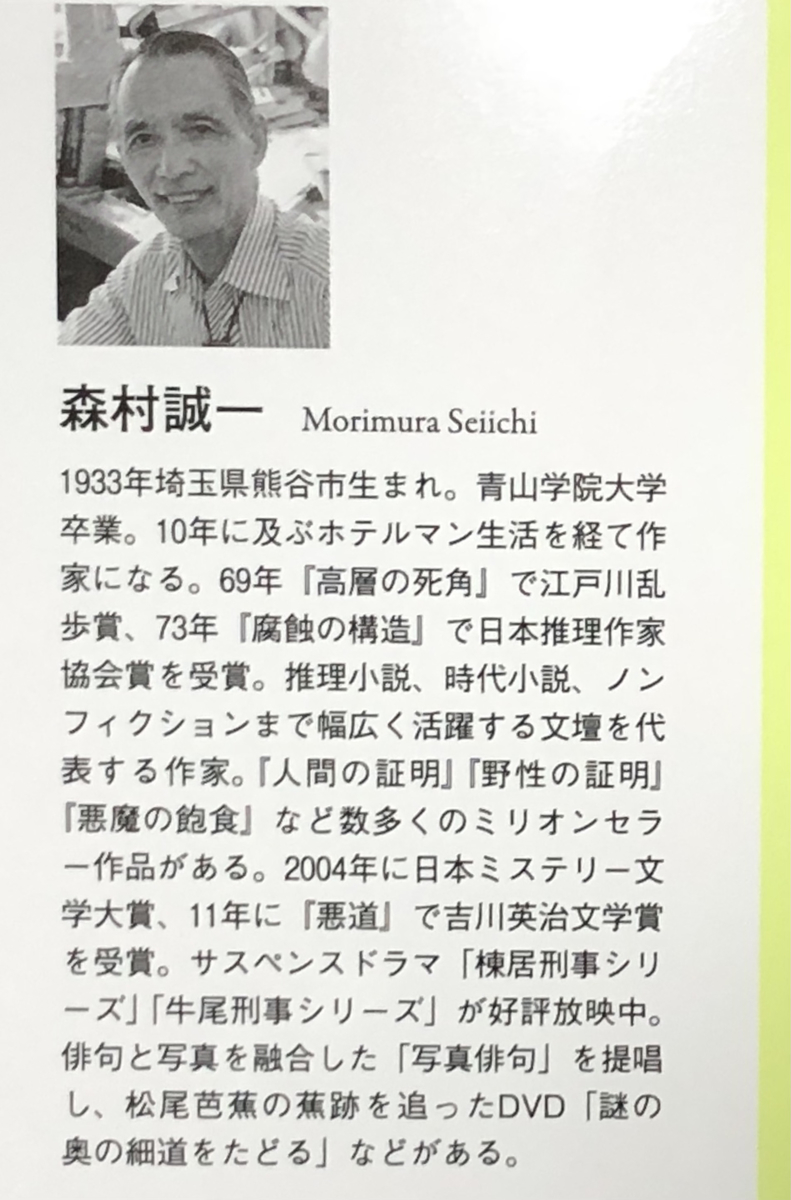 森村誠一 Morimura Seiichi
1933年埼玉県熊谷市生まれ。青山学院大学
卒業。10年に及ぶホテルマン生活を経て作
家になる。69年『高層の死角』で江戸川乱
歩賞、73年『腐蝕の構造』で日本推理作家
協会賞を受賞。推理小説、時代小説、ノン
フィクションまで幅広く活躍する文壇を代
表する作家。『人間の証明』『野性の証明』
『悪魔の飽食』など数多くのミリオンセラ
ー作品がある。2004年に日本ミステリー文
学大賞、11年に『悪道』で吉川英治文学賞
を受賞。サスペンスドラマ「棟居刑事シリ
ーズ」「牛尾刑事シリーズ」が好評放映中。
俳句と写真を融合した「写真俳句」を提唱
し、松尾芭蕉の蕉跡を追ったDVD「謎の
奥の細道をたどる」などがある。